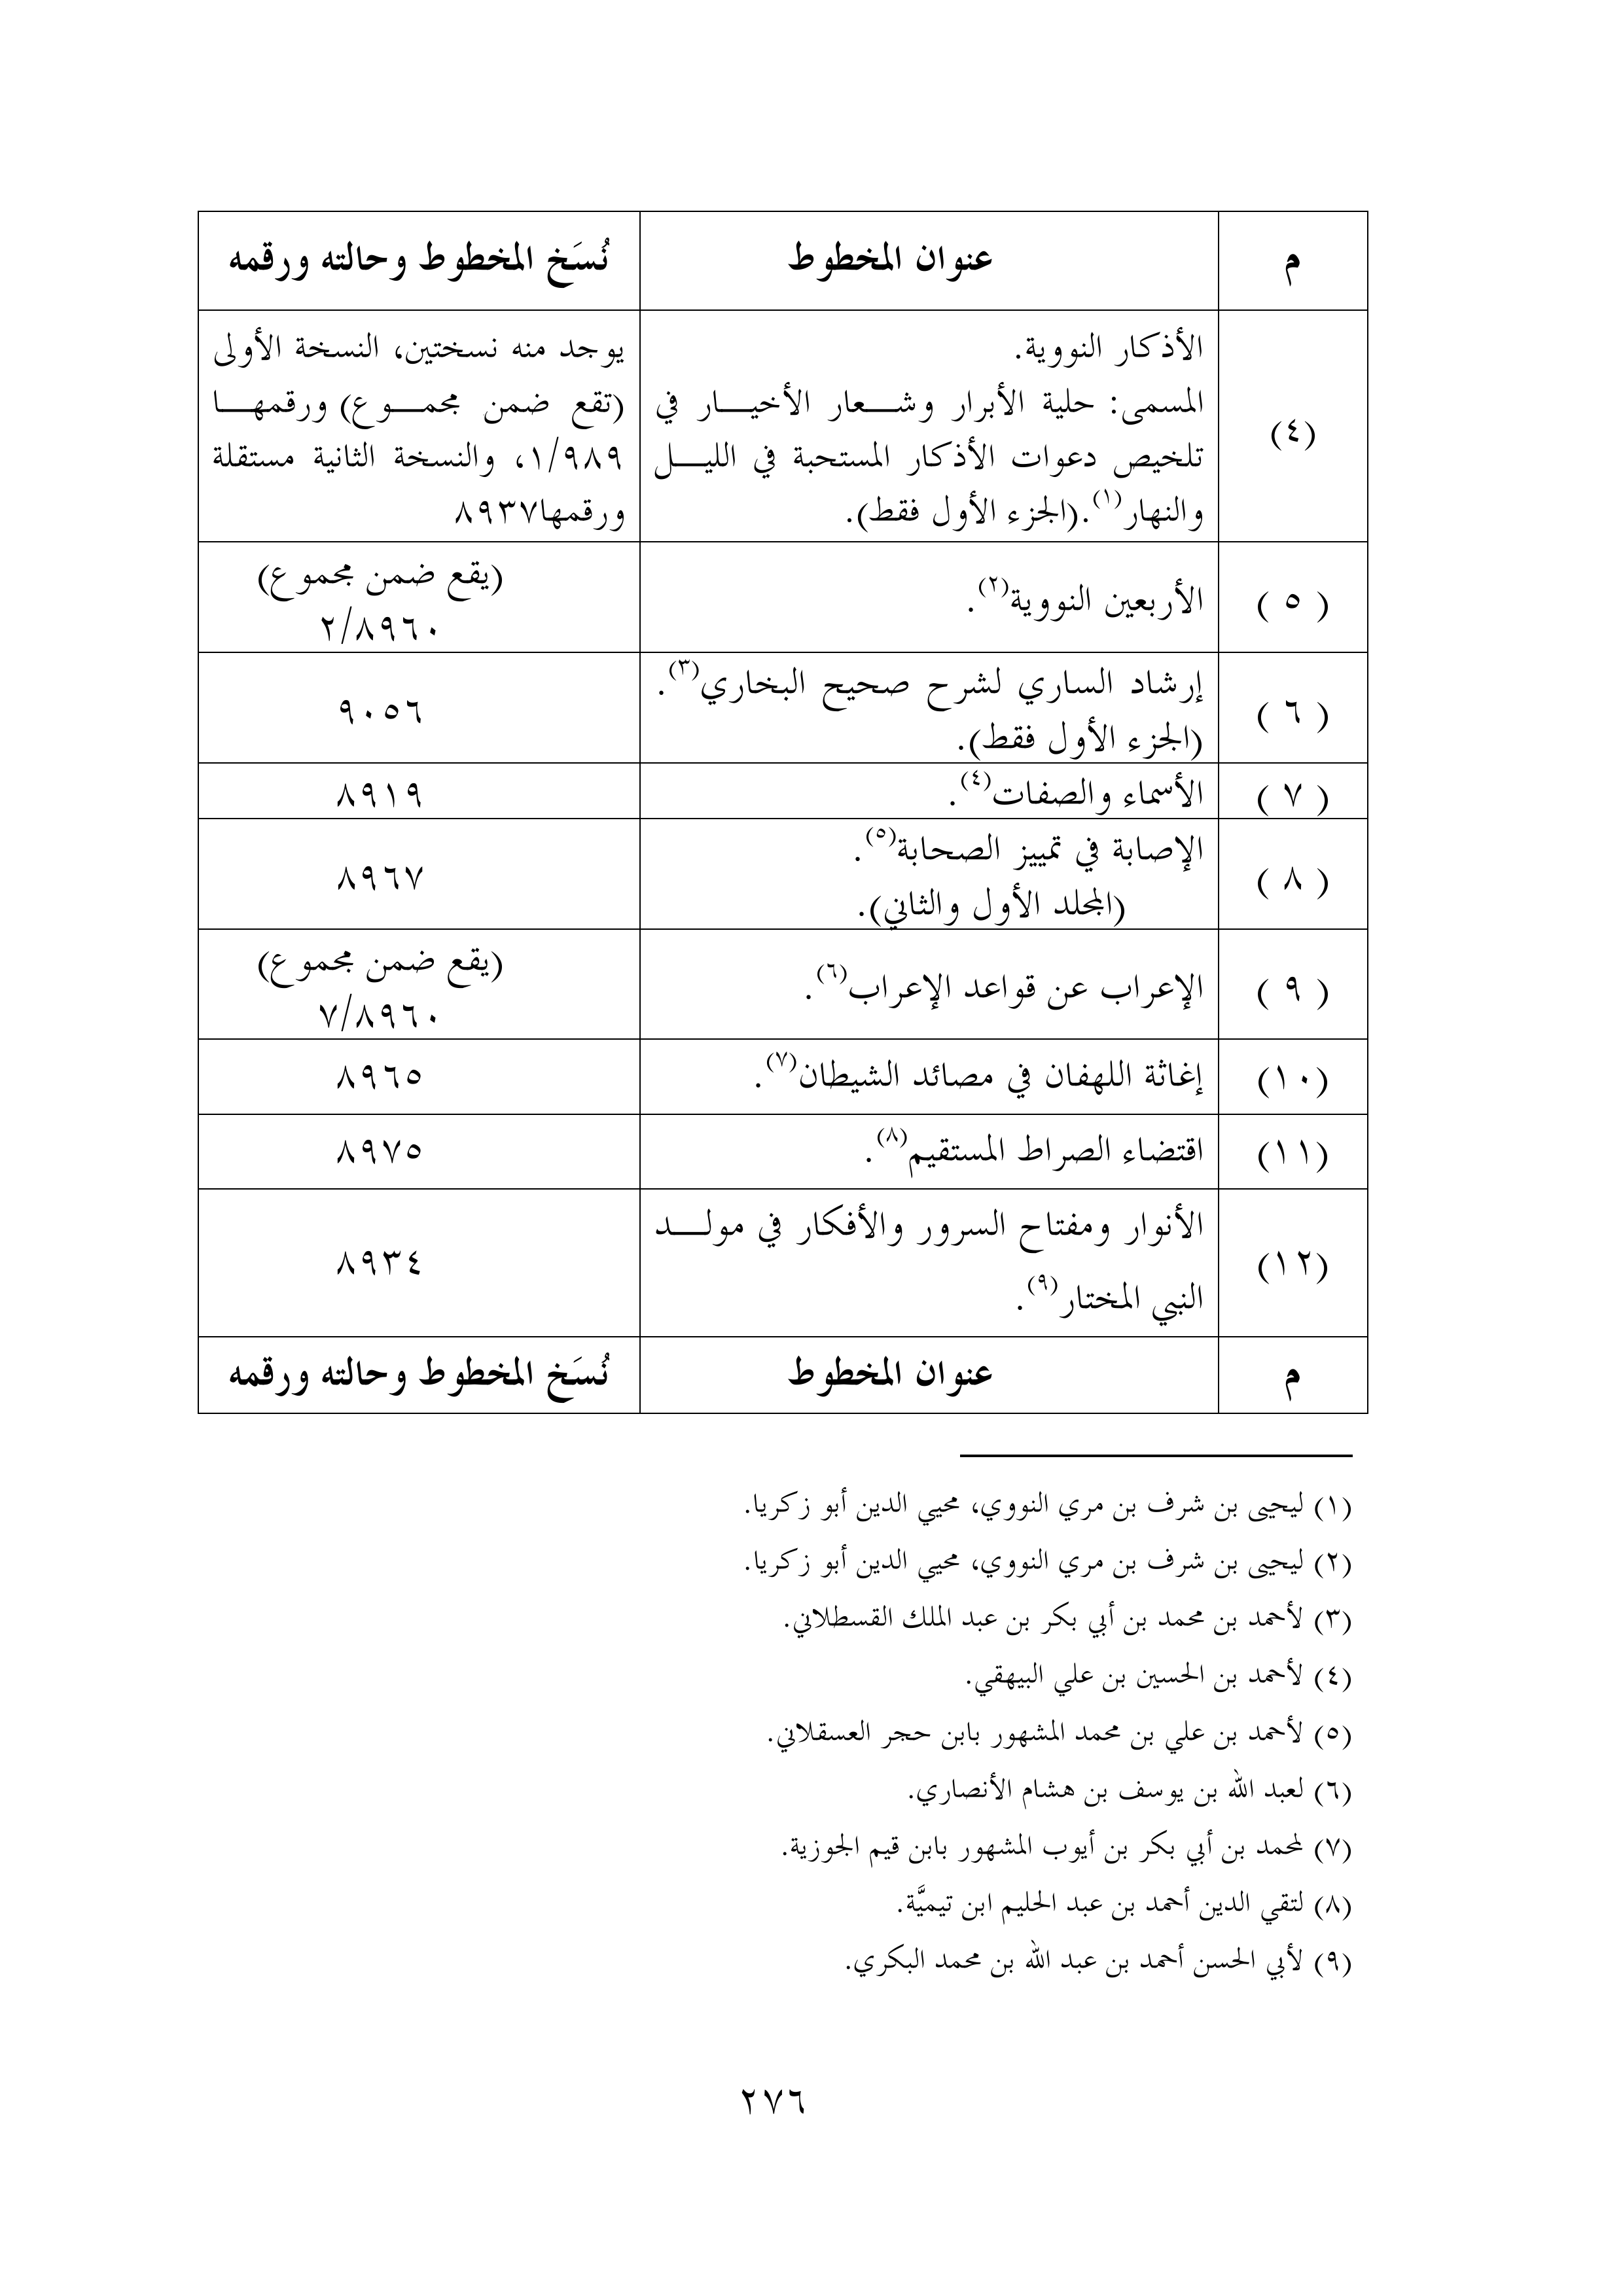 م عنوان المخطوط نُسَخ المخطوط وحالته ورقمه
(٤)
الأذكار النووية.
المسمى: حلية الأبرار وشعار الأخيار في
تلخيص دعوات الأذكار المستحبة في الليل
والنهار(١).(الجزء الأول فقط).
يوجد منه نسختين، النسخة الأولى
(تقع ضمن مجموع) ورقمها
١/٩٨٩، والنسخة الثانية مستقلة
ورقمها٨٩٣٧
( ٥ )
الأربعين النووية(٢).
(يقع ضمن مجموع)
٢/٨٩٦٠
( ٦ )
إرشاد الساري لشرح صحيح البخاري(٣).
(الجزء الأول فقط).
٩٠٥٦
( ٧ )
الأسماء والصفات(٤).
٨٩١٩
( ٨ )
الإصابة في تمييز الصحابة(٥).
(المجلد الأول والثاني).
٨٩٦٧
( ٩ )
الإعراب عن قواعد الإعراب(٦).
(يقع ضمن مجموع)
٧/٨٩٦٠
(١٠)
إغاثة اللهفان في مصائد الشيطان(٧).
٨٩٦٥
(١١)
اقتضاء الصراط المستقيم(٨).
٨٩٧٥
(١٢)
الأنوار ومفتاح السرور والأفكار في مولد
النبي المختار(٩).
٨٩٣٤
م عنوان المخطوط نُسَخ المخطوط وحالته ورقمه
(١) ليحيى بن شرف بن مري النووي، محيي الدين أبو زكريا.
(٢) ليحيى بن شرف بن مري النووي، محيي الدين أبو زكريا.
(٣) لأحمد بن محمد بن أبي بكر بن عبد الملك القسطلاني.
(٤) لأحمد بن الحسين بن علي البيهقي.
(٥) لأحمد بن علي بن محمد المشهور بابن حجر العسقلاني.
(٦) لعبد الله بن يوسف بن هشام الأنصاري.
(٧) لمحمد بن أبي بكر بن أيوب المشهور بابن قيم الجوزية.
(٨) لتقي الدين أحمد بن عبد الحليم ابن تيميَّة.
(٩) لأبي الحسن أحمد بن عبد الله بن محمد البكري.
٢٧٦